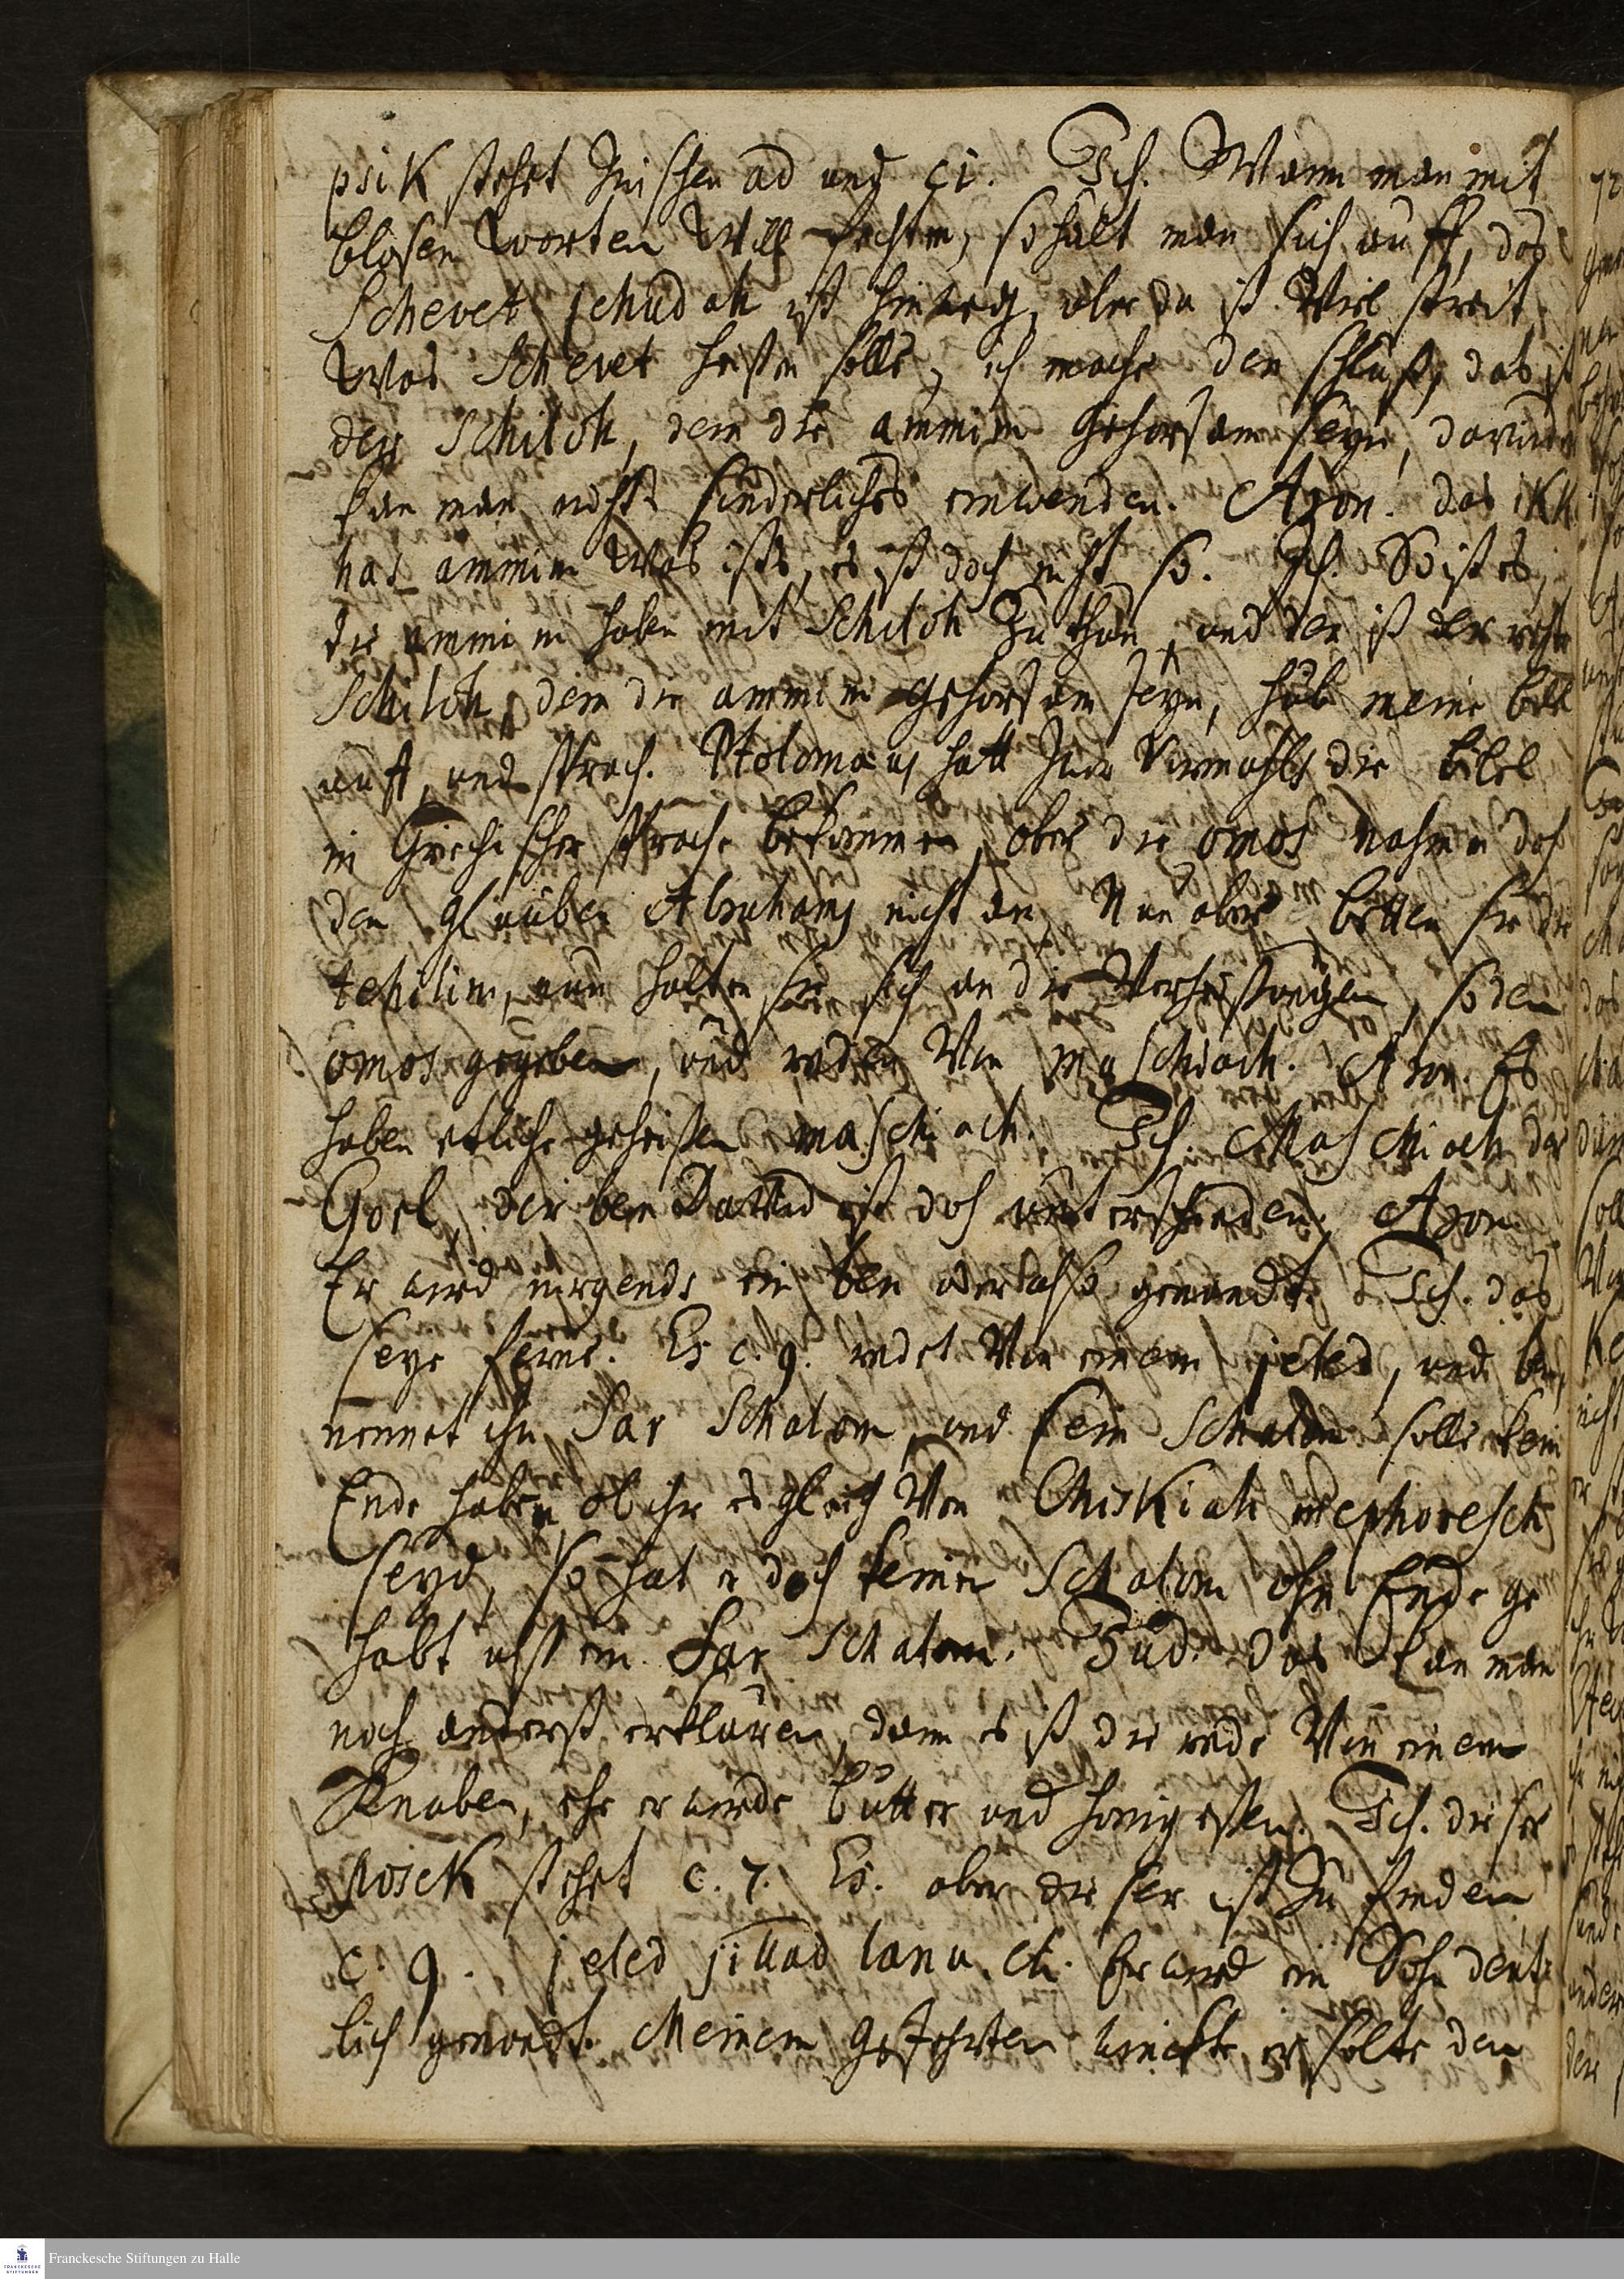 psik stehet zwischen ad und ci. Ich. Wann man mit
blosen Worten Will fechten, so hält man sich auff, das
Schevet jehudah ist hinweg, aber da ist Viel streit,
Was Schevet heisen solle, ich mache den schluß, das ist
der Schiloh, dem die ammim gehorsam seyn, darwider
kan man nichts sonderliches einwenden. Aron. das ikk
has ammim Was ists, es ist doch nicht so. Ich. So ist es,
die ammim haben mit Schiloh Zu thun, und der ist der rechte
Schiloh, dem die ammim gehorsam seyn, hub meine
auff, und sprach. Ptolomaus hatt zwar Vormahls die bibel
in Griechischer sprache bekommen, aber die omos nahmen doch
den glauben Abrahams nicht an, Nun aber betten sie die
tehilim, nun halten sie sich an die Verheisungen, so den
omos gegeben, und reden Von maschiach. Aron. Es
haben etliche geheisen maschiach. Ich. Maschiach der
Goel, der ben David ist doch unterschieden. Aron.
Er wird nirgends ein ben genandt. Ich. das
seye ferne. Es. c. 9. redet Von einem jeled, und ben,
nennet ihn Sar Schalom, und sein Schalom solle kein
Ende haben, ob ihr es gleich Von Chiskiah mephoresch
seyd, so hat er doch keinen Schalom ohn Ende ge
habt als ein Sar Schalom. Jud. das kan man
noch anderst erklären, dann es ist die rede Von einem
Knaben, ehe er werde butter und honig essen. Ich. dieser
posek stehet c. 7. Es. aber dieser ist Zu finden
c. 9. jeled jillad lanu. etc. Er wird ein Sohn deut
lich genandt. Meinem gefehrten winckte, er solte den
Franckesche Stiftungen zu Halle